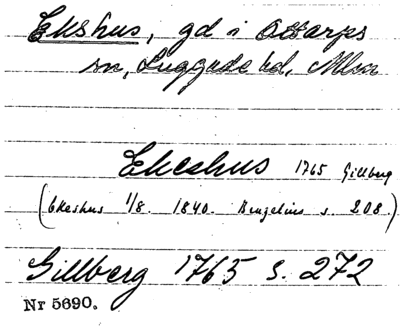 Ekshus, gd i Ottarps
sn, Luggude hd, Mlm
Ekeshus 1765 Gillberg
(Ekeshus 1/8. 1840. Benzelius s. 208.)
Gillberg 1765 s. 272
Nr 5690.